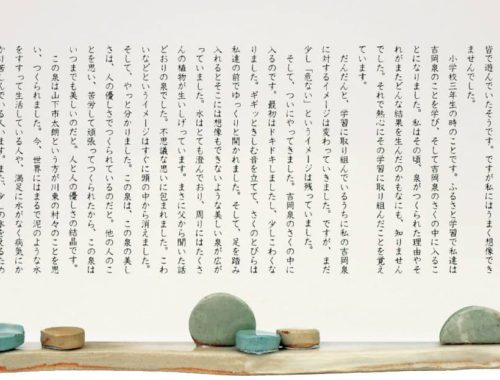 皆で遊んでいたそうです。ですが私にはうまく想像でき
ませんでした。
小学校三年生の時のことです。ふるさと学習で私達は
吉岡泉のことを学び、そして吉岡泉のさくの中に入るこ
とになりました。私はその頃、泉がつくられた理由やそ
れがまたどんな結果を生んだのかもなにも、知りません
でした。それで熱心にその学習に取り組んだことを覚え
ています。
だんだんと、学習に取り組んでいるうちに私の吉岡泉
に対するイメージは変わっていきました。ですが、まだ
少し「危ない」というイメージは残っていました。
そして、ついにやってきました。吉岡泉のさくの中に
入るのです。最初はドキドキしましたし、少しこわくな
りました。ギギッときしむ音を立てて、さくのとびらは
私達の前でゆっくりと開かれました。そして、足を踏み
入れるとそこには想像もできないような美しい泉が広が
っていました。水はとても澄んでおり、周りにはたくさ
んの植物が生いしげっています。まさに父から聞いた話
どおりの泉でした。不思議な思いに包まれました。こわ
いなどというイメージはすぐに頭の中から消えました。
そして、やっと分かりました。この泉は、この泉の美し
さは、人の優しさでつくられているのだと。他の人のこ
とを思い、苦労して頑張ってつくられたから、この泉は
いつまでも美しいのだと。人と人の優しさの結晶です。
この泉は山下市太朗という方が川東の村々のことを思
い、つくられました。今、世界にはまるで泥のような水
をすすって生活している人や、満足に水がなく病気にか